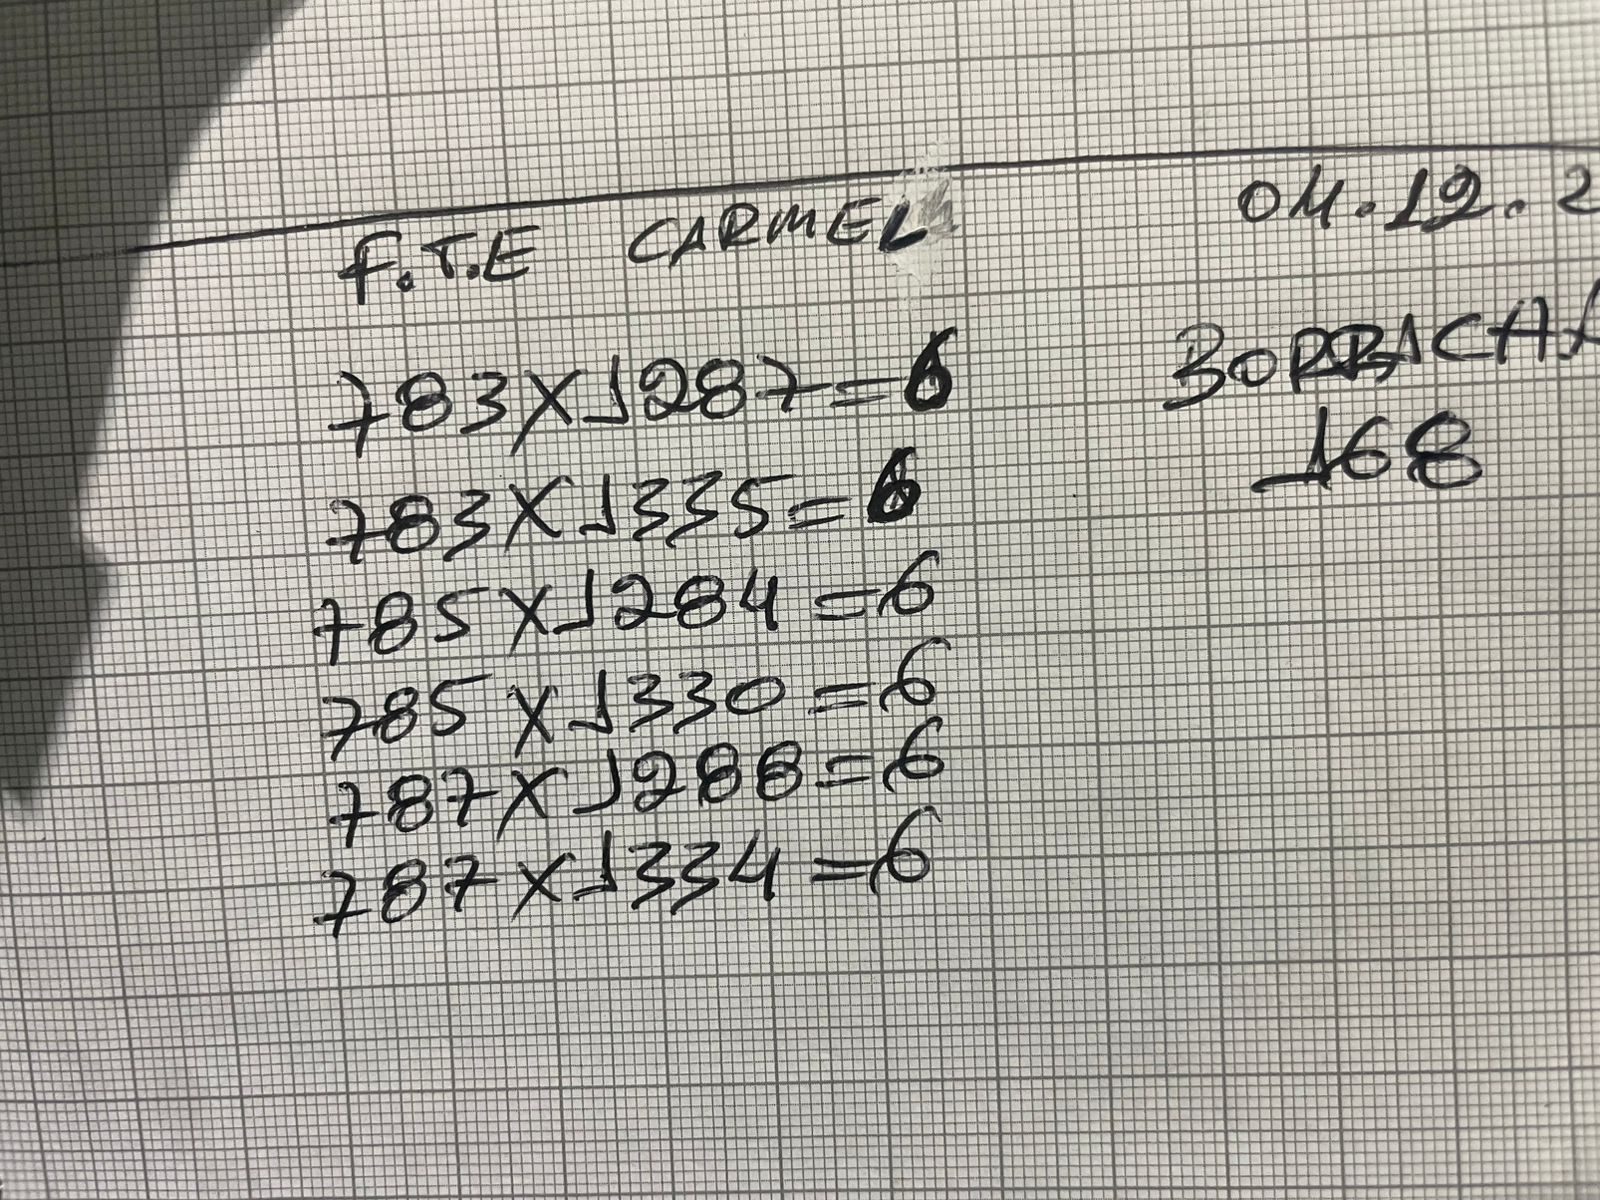 F.T.E CARMEL 04.12.2
783X1287=6
BORRACHA
168
783X1335=6
785X1284=6
785X1330=6
787X1288=6
787X1334=6